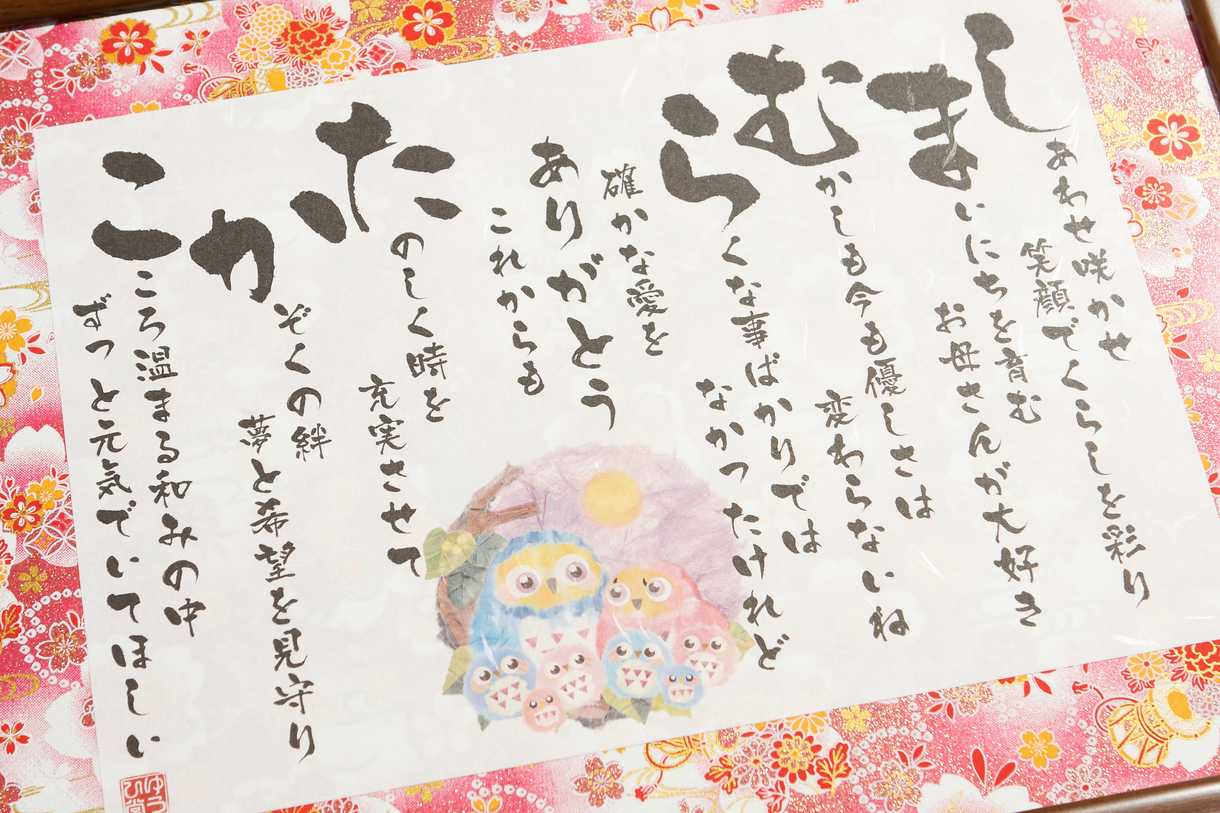 しあわせ咲かせ
笑顔でくらしを彩り
まいにちを育む
お母さんが大好き
むかしも今も優しさは
変わらないね
らくな事ばかりでは
なかったけれど
確かな愛を
ありがとう
これからも
たのしく時を
充実させて
かぞくの絆
夢と希望を見守り
こころ温まる和みの中
ずっと元気でいてほしい